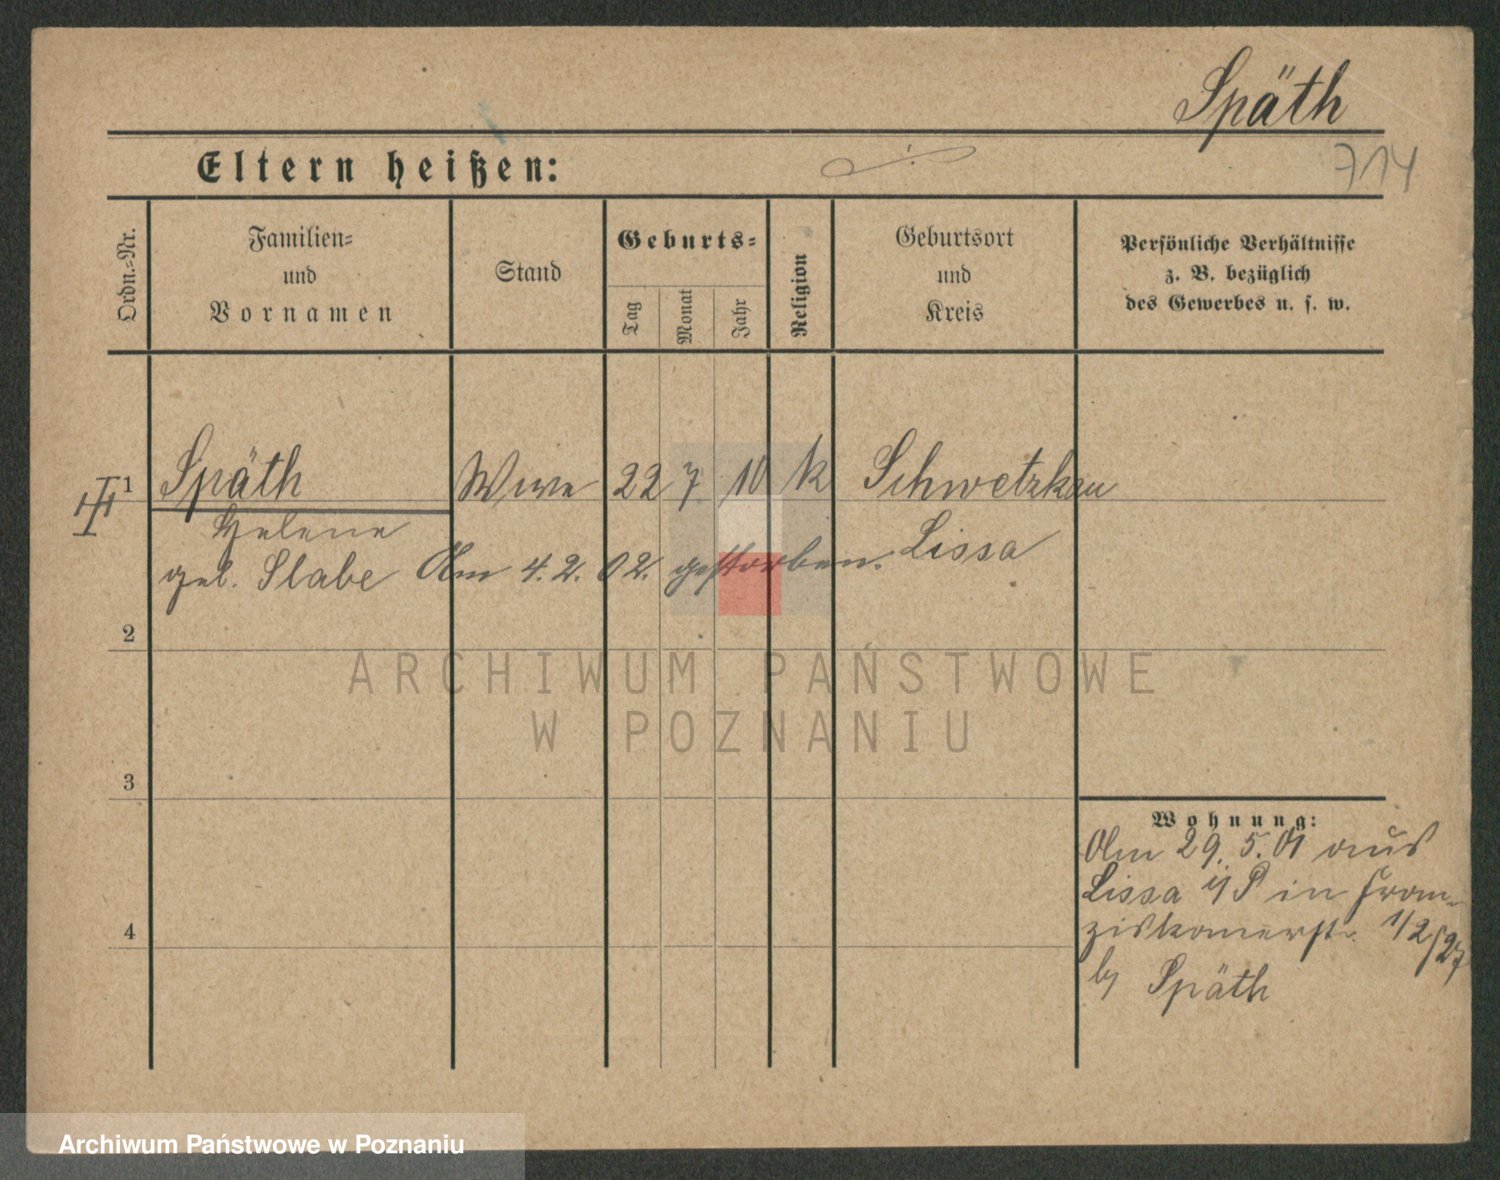 Späth
714
Eltern heißen:
Ordn.=Nr.
Familien=
und
Vornamen
Stand
Geburts=
Tag
Monat
Jahr
Religion
Geburtsort
und
Kreis
Persönliche Verhältnisse
z. B. bezüglich
des Gewerbes u. s. w.
1 Späth Wwe 22 7. 10 k Schwetzkau
Helene Lissa
geb. Slabe Am 4. 2. 02. gestorben.
2
3
4
Wohnung:
Am 29. 5. 01 aus
Lissa i/P in Fran-
ziskanerstr. 1/2/27
by Späth
ARCHIWUM PAŃSTWOWE
W POZNANIU
Archiwum Państwowe w Poznaniu